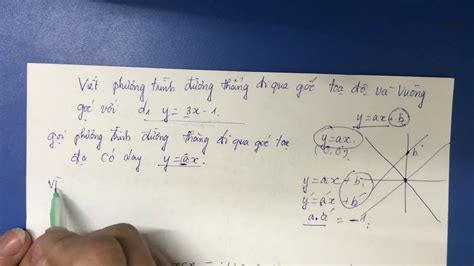 Viết phương trình đường thẳng đi qua gốc toạ độ và vuông
góc với d₁ y = 3x - 1.
gọi phương trình đường thẳng đi qua gốc toạ
độ có dạng y = ax.
Vì
y = ax + b
y = ax.
(0; 0)
b
y = ax + b
y' = a'x + b'
a.a' = -1